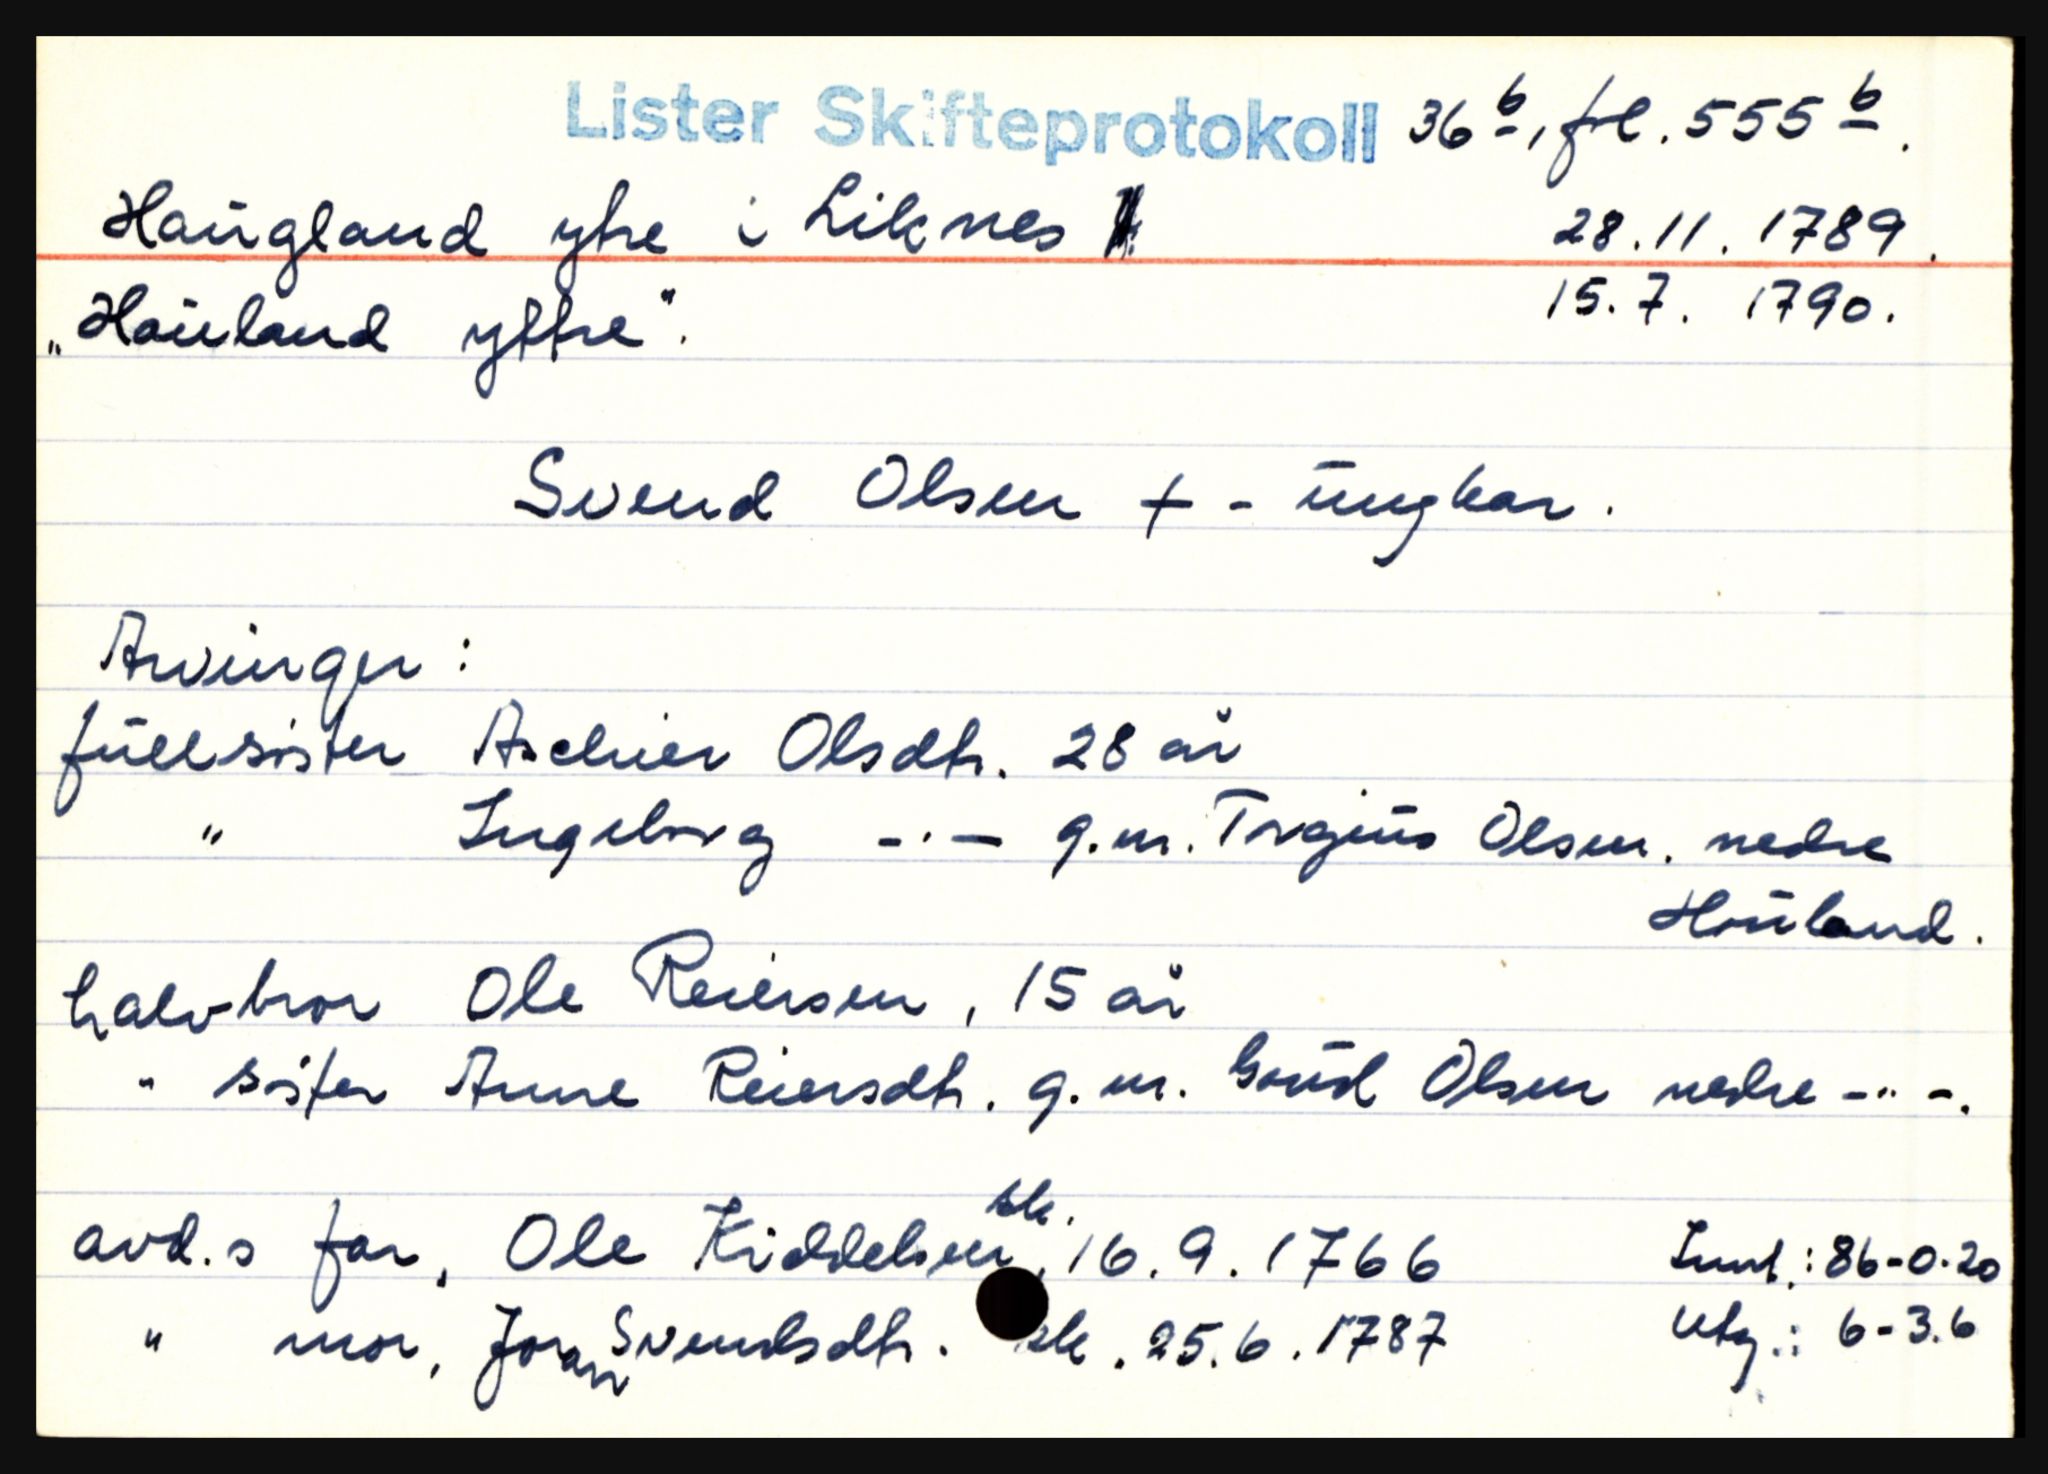 Lister Skifteprotokoll 36 b, fol. 555 b.
Haugland ytre i Liknes 28.11.1789.
"Hauland yttre". 15.7.1790.
Svend Olsen + - ungkar.
Arvinger:
fullsøster Aschier Olsdtr. 28 år
" Ingeborg -"- g.m. Tregius Olsen. nedre
Houland.
halvbror Ole Reiersen, 15 år
" søster Anne Reiersdtr. g.m. Goud Olsen nedre -"-.
sk.
avd.s far, Ole Kiddelsen, 16.9.1766 Innt.: 86-0-20
" mor, Joran Svendsdtr. sk. 25.6.1787 Utg.: 6-3.6